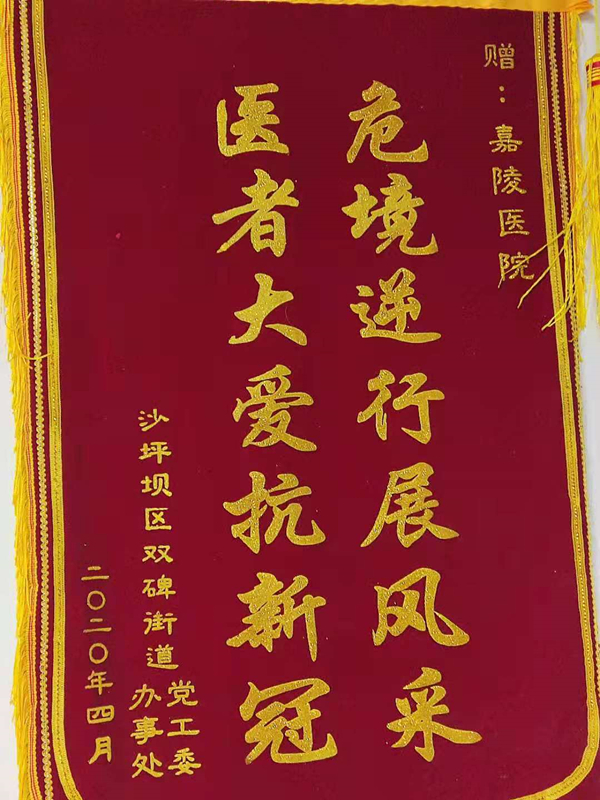 赠：嘉陵医院
危境逆行展风采
医者大爱抗新冠
沙坪坝区双碑街道
党工委
办事处
二〇二〇年四月